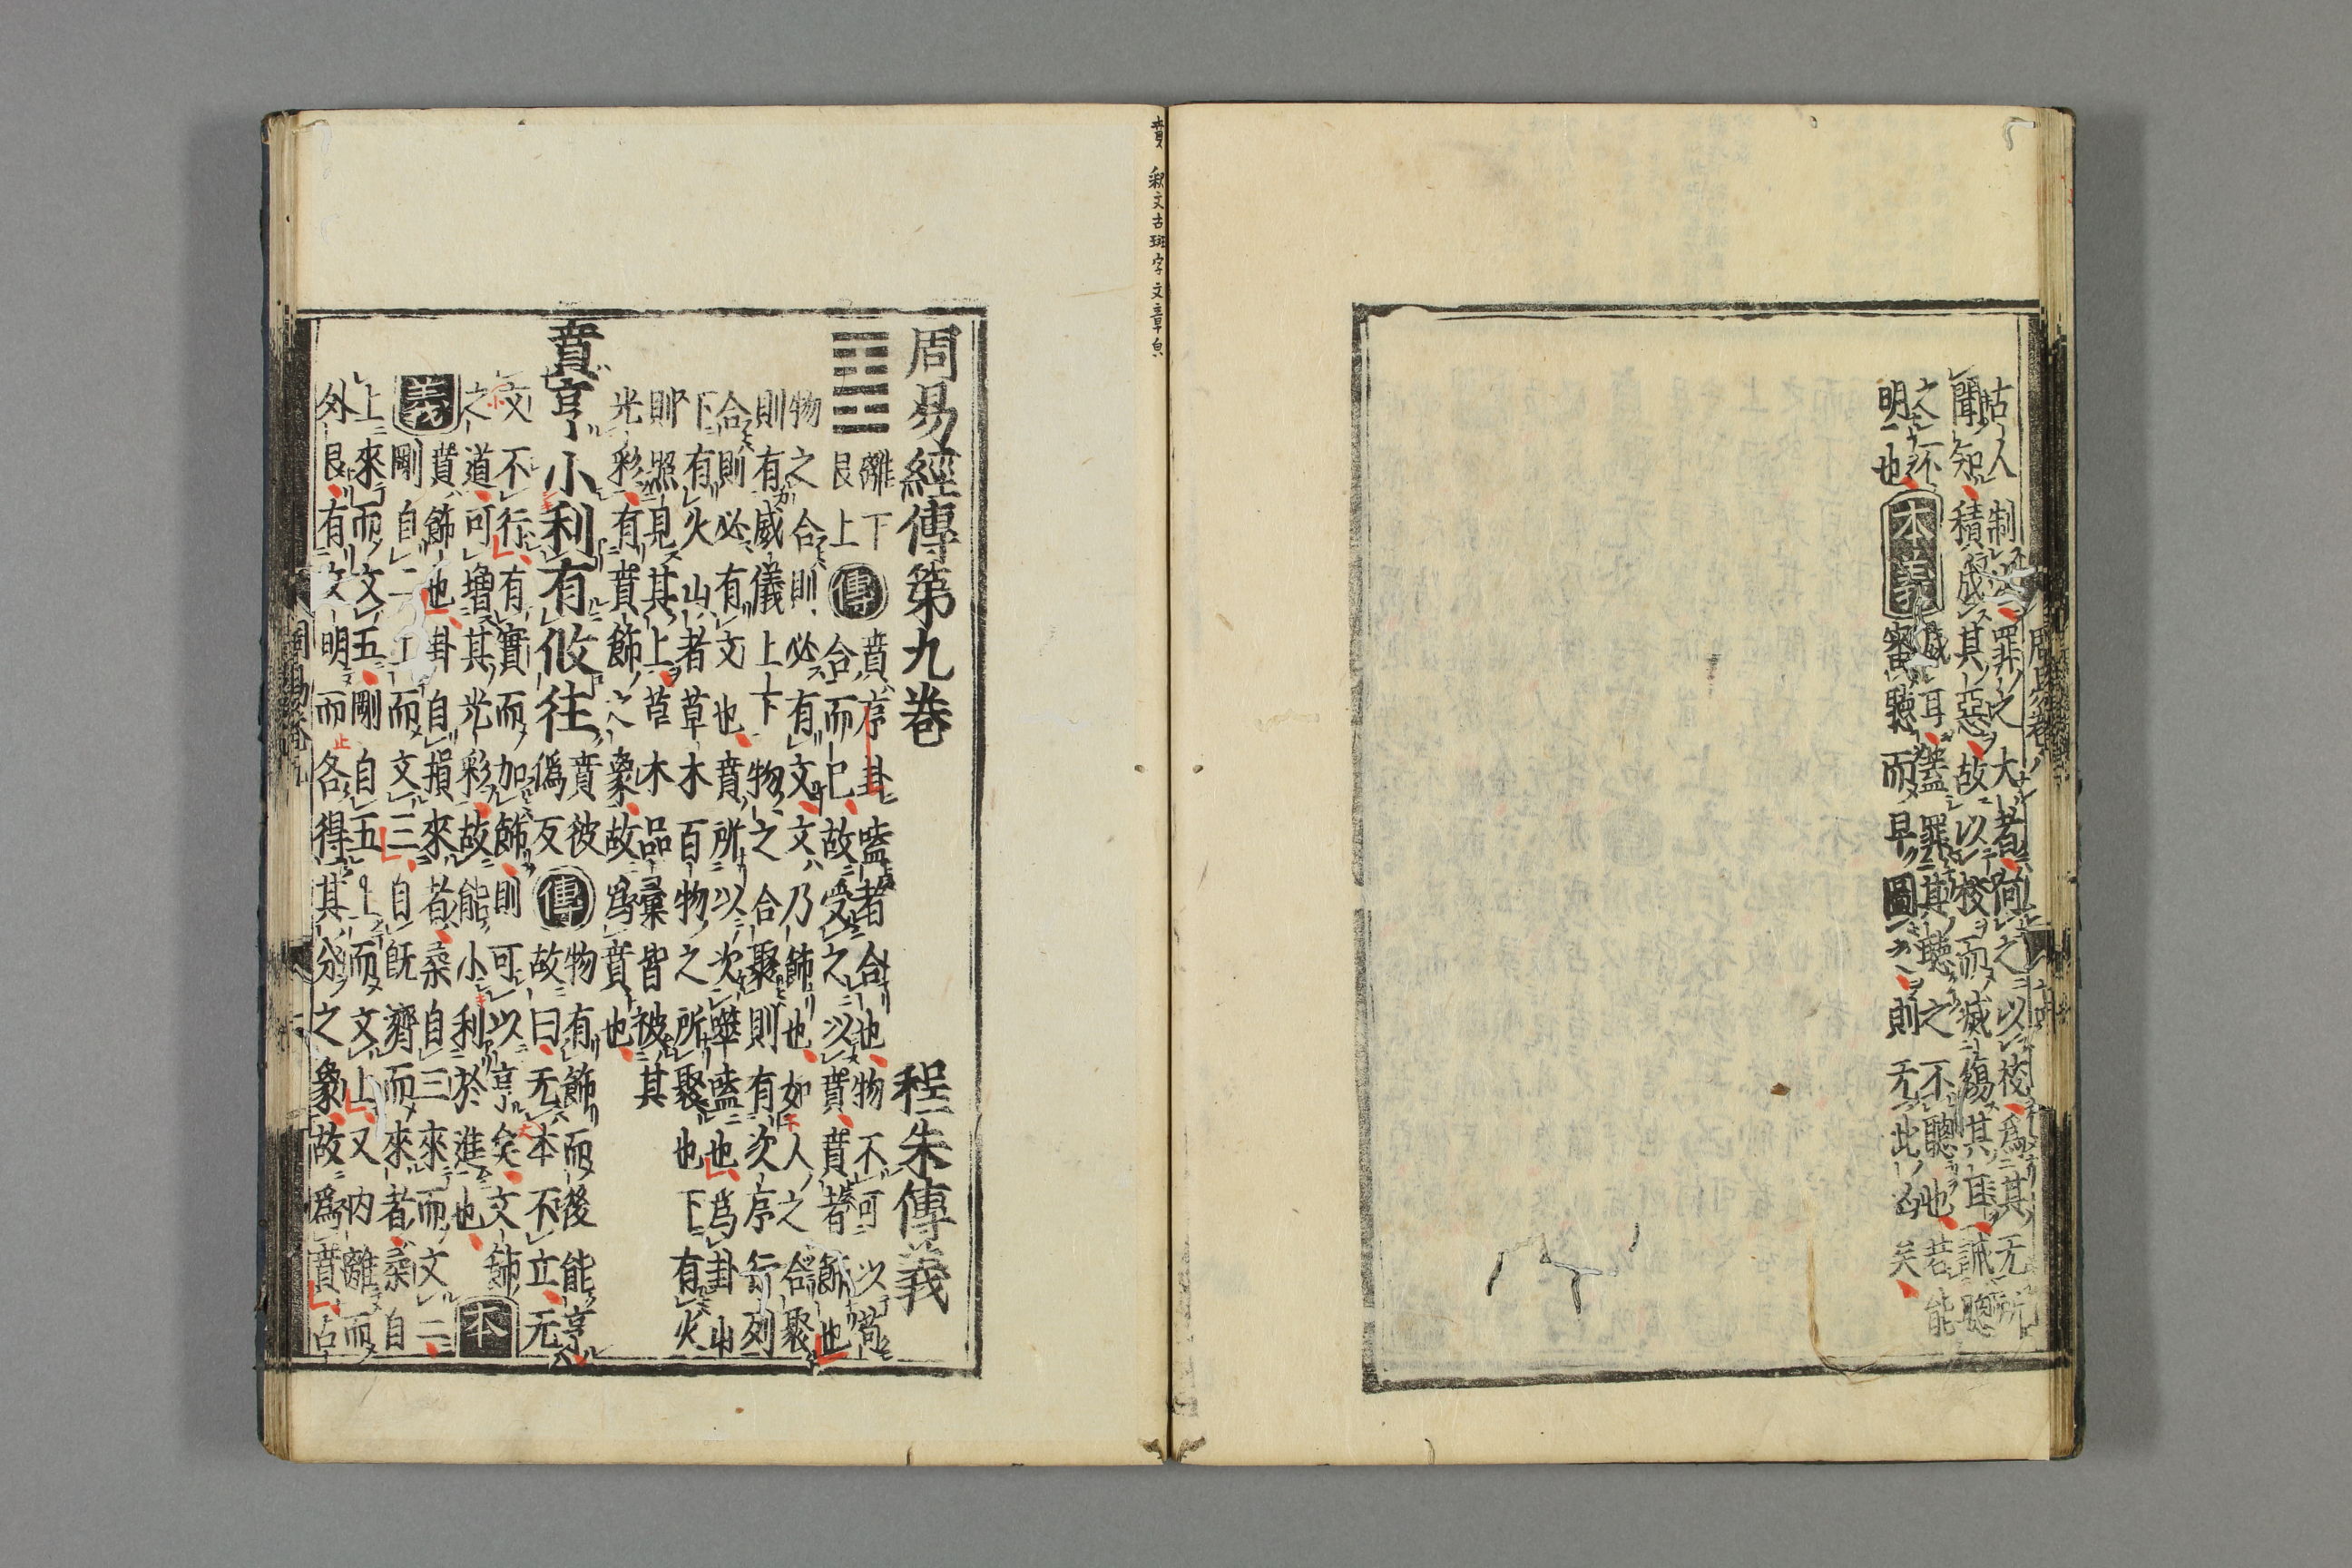 古人制
罪之大者何之以校爲其无所
聞知積成其惡故以校而滅傷其耳誡聰
之不
明也
本義
滅耳蓋罪其聽之不聰也若能
審聽而早圖之則无此凶矣
賁 釈文古斑字文章皃
周易經傳第九卷
程朱傳義
離下
艮上
傳
賁序卦嗑者合也物不可以苟
合而已故受之以賁賁者飾也
物之合則必有文文乃飾也如人之合聚
則有威儀上下物之合聚則有次序行列
合則必有文也賁所以次噬嗑也爲卦山
下有火山者草木百物之所聚也下有火
則照見其上草木品彙皆被其
光彩有賁飾之象故爲賁也
賁亨小利有攸往
賁彼
僞反
傳
物有飾而後能亨
故曰无本不立无
文不行有實而加飾則可以亨矣文飾
之道可增其光彩故能小利於進也
本
義
賁飾也卦自損來者柔自三來而文二
剛自二上而文三自旣濟而來者柔自
上來而文五剛自五上而文上又内離而
外艮有文明而各得其分之象故爲賁占